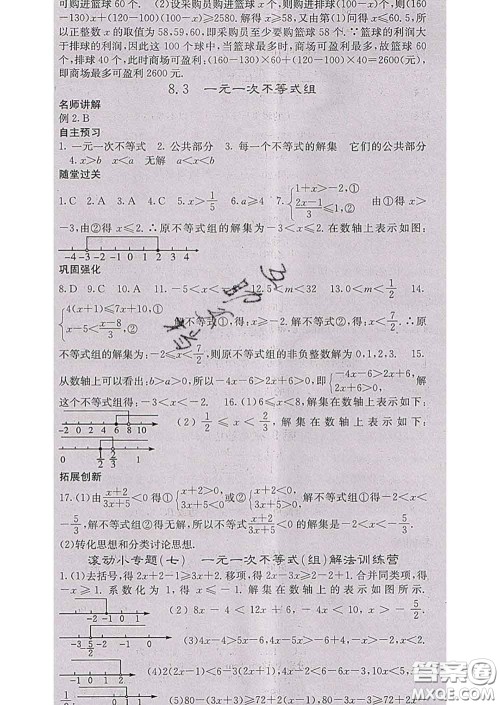 可购进篮球60个. (2)设采购员购进篮球x个,则购进排球(100-x)个,则(160
-130)x+(120-100)(100-x)≥2580. 解得x≥58,又由第(1)问得x≤60.5,所
以正整数x的取值为58,59,60,即采购员至少要购篮球58个. ∵篮球的利润大
于排球的利润,因此这100个球中,当篮球最多时,商场可盈利最多,故篮球60
个,排球40个,此时商场可盈利:(160-130)×60+(120-100)×40=2600(元),
即商场最多可盈利2600元.
8.3 一元一次不等式组
名师讲解
例2.B
自主预习
1. 一元一次不等式 2. 公共部分 3. 每一个不等式的解集 它们的公共部分
4. x>b x<a 无解 a<x<b
随堂过关
1.C 2.A 3.A 4.C 5. x>1/5 6. a≥4 7. {1+x>-2,① (2x-1)/3≤1.② 由①得x>
-3,由②得x≤2. ∴原不等式组的解集为-3<x≤2.在数轴上表示如图:
-4 -3 -2 -1 0 1 2 3 4
巩固强化
8.D 9.C 10.A 11. -5<x<
12.5<m<32 13.0<m<1/2 14.
{4(x+1)≤7x+10,① x-5<(x-8)/3,②
解不等式①,得:x≥-2. 解不等式②,得:x<7/2,∴原
不等式组的解集为:-2≤x<7/2,则原不等式组的非负整数解为0,1,2,3. 15.
从数轴上可以看出:b>a>0,所以-4x-6>2x+6>0,即{-4x-6>2x+6, 2x+6>0, 解
这个不等式组得:-3<x<-2. 16.(1)6≤x<8,解集在数轴上表示如下:
-2 0 2 4 6 8 10
(2)1/2≤x<2/3,解集在数轴上表示如下:
拓展创新
17.(1)由(x+2)/(3x+5)<0得①{x+2>0, 3x+5<0 或②{x+2<0, 3x+5>0. 解不等式组①得-2<x<
-5/3,解不等式组②得无解,所以不等式(x+2)/(3x+5)<0的解集是-2<x<-5/3.
(2)转化思想和分类讨论思想.
滚动小专题(七) 一元一次不等式(组)解法训练营
1.(1)去括号,得2x+2-1≥3x+2.移项,得2x-3x≥2-2+1.合并同类项,得
-x≥1. 系数化为1,得x≤-1. 这个不等式的解集在数轴上的表示如图所示.
(2) 8x-4<12x+6, -4x<10, x>-5/2.
(3)4x-5x>6-4,-x>2,x<-2.
(4)2(2x-1)<6-3(2x-6),10x<26,x<
(5)80-(3x+8)≥72+2(x-1),80-3x-8≥72+2x
答案圈
MXQE.COM